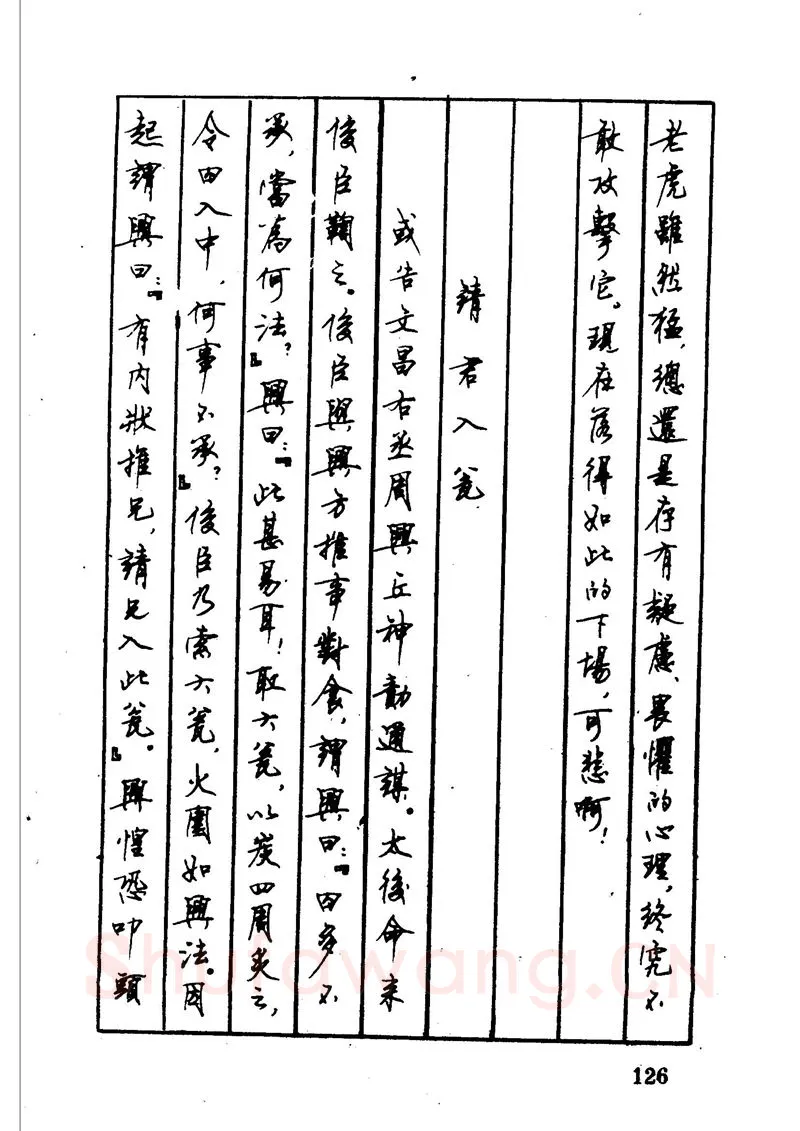 老虎雖然猛，總還是存有疑慮、畏懼的心理，終究不
敢攻擊它。現在落得如此的下場，可悲啊！
請君入瓮
或告文昌右丞周興丘神勣通謀。太後命来
俊臣鞫之。俊臣與興方推事對食，謂興曰：『囚多不
承，當為何法？』興曰：『此甚易耳！取大瓮，以炭四周炙之，
令囚入中，何事不承？』俊臣乃索大瓮，火圍如興法。因
起謂興曰：『有内狀推兄，請兄入此瓮。』興惶恐叩頭
Shufawang.CN
126